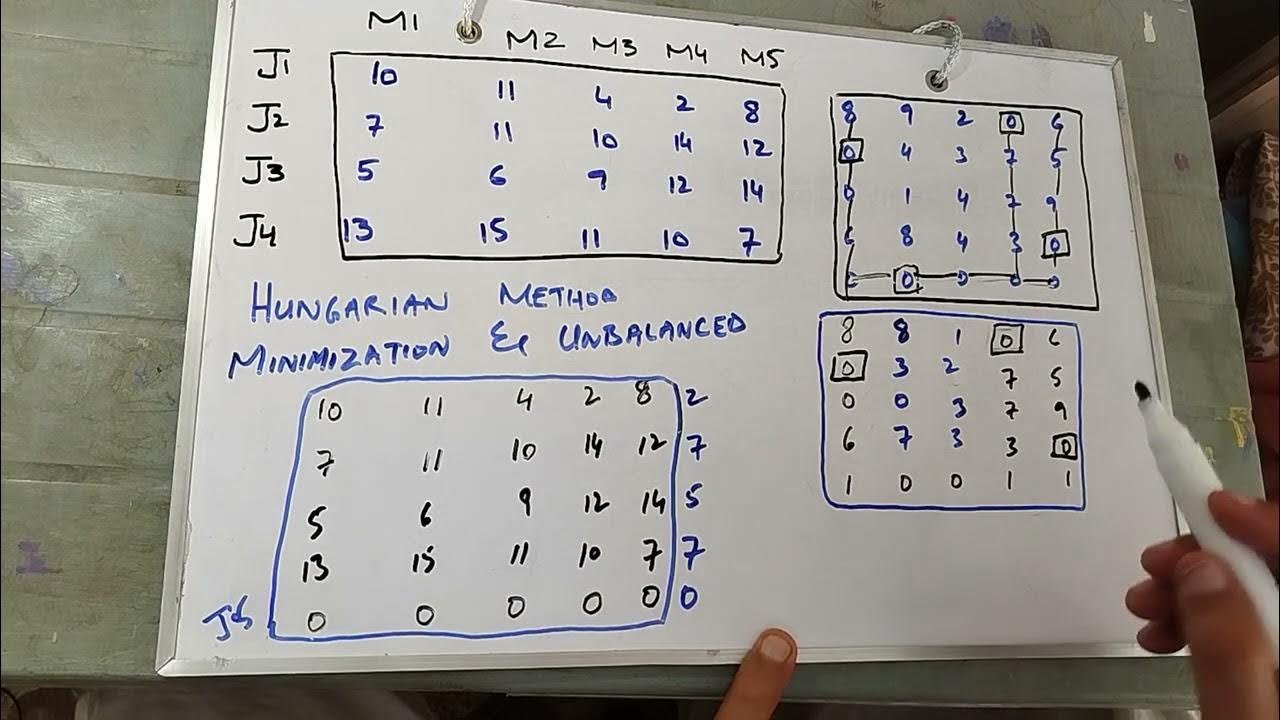 M1 M2 M3 M4 M5
J1 10 11 4 2 8
J2 7 11 10 14 12
J3 5 6 9 12 14
J4 13 15 11 10 7
HUNGARIAN METHOD
MINIMIZATION & UNBALANCED
10 11 4 2 8 2
7 11 10 14 12 7
5 6 9 12 14 5
13 15 11 10 7 7
J5 0 0 0 0 0 0
8 9 2 0 6
0 4 3 7 5
0 1 4 7 9
6 8 4 3 0
0 0 0 0 0
8 8 1 0 6
0 3 2 7 5
0 0 3 7 9
6 7 3 3 0
1 0 0 1 1